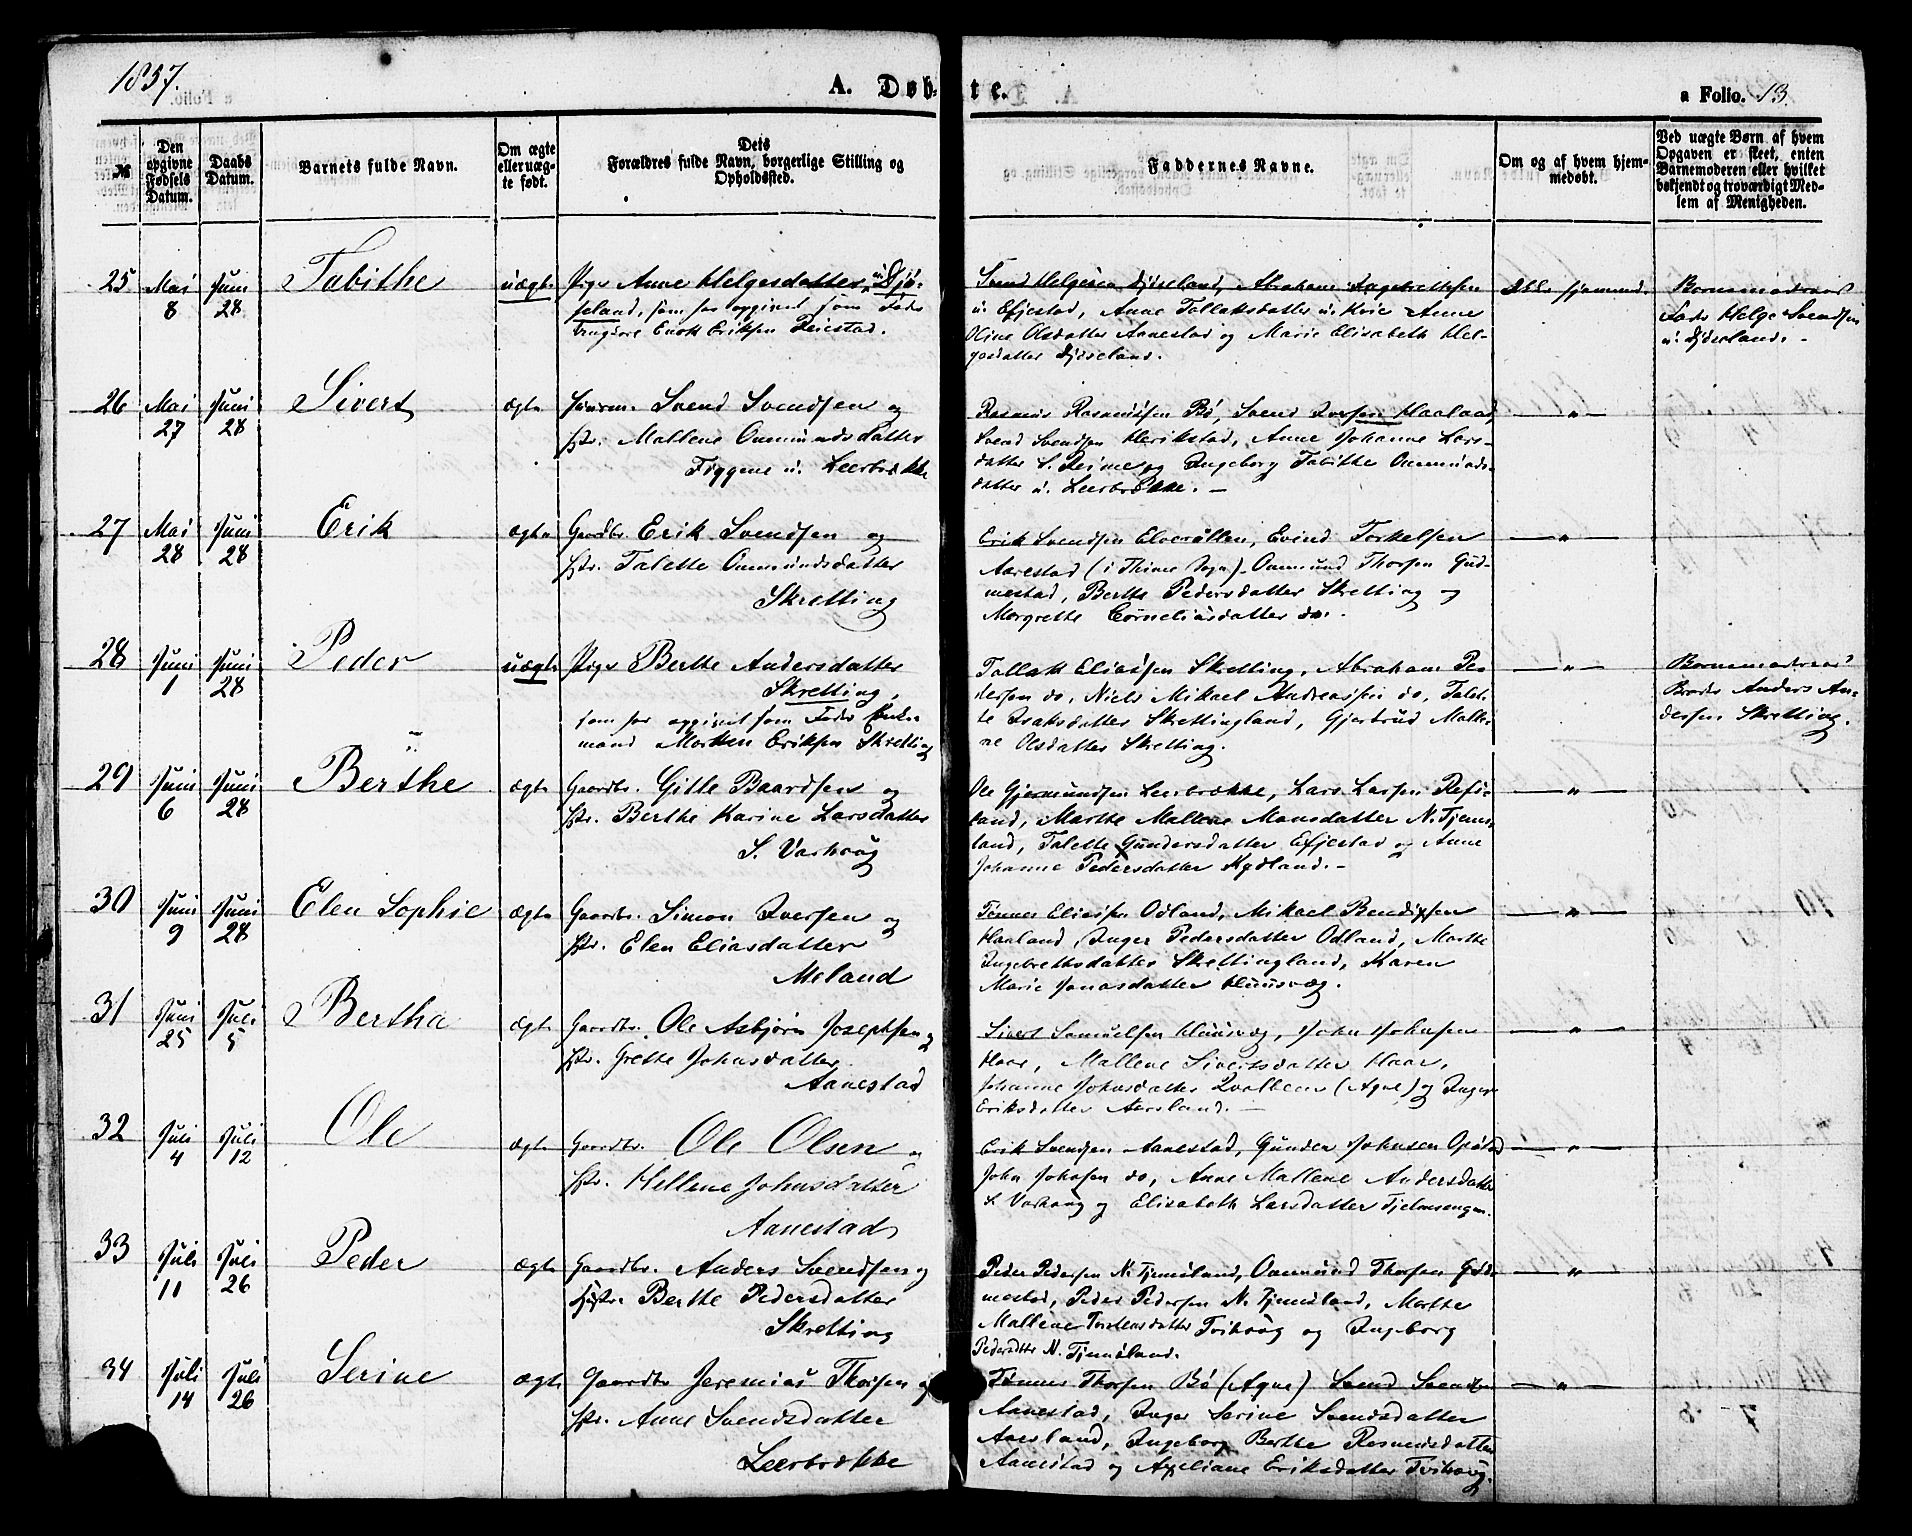 1857.
A. Døb-
te.
a Folio. 13
№
Den
opgivne
Fødsels
Datum.
Daabs
Datum.
Barnets fulde Navn.
Om ægte
eller uæg-
te født.
Dets
Forældres fulde Navn, borgerlige Stilling og
Opholdssted.
Faddernes Navne.
Om og af hvem hjem-
medøbt.
Ved uægte Børn af hvem
Opgaven er skeet, enten
Barnemoderen eller hvilket
bekjendt og troværdigt Med-
lem af Menigheden.
25 Mai 8 Juni 28 Tabithe uægte Pige Anne Helgesdatter
som har opgivet som Fader
Enok Eriksen Feiestad.
Svend Helgesen Abraham
Anne Tollaksdatter Anne
Oline Olsdatter Aanestad og Marie Elisabeth Hel-
gesdatter
Barnemoderens
Fader Helge Svendsen
26 Mai 27 Juni 28 Sivert ægte Svend Svendsen og
Hstr. Mallene Ommundsdatter
Figgene u. Leerbrække
Rasmus Rasmussen Bø, Svend Iversen Haaland,
Svend Svendsen Herikstad, Anne Johanne Lars-
datter S. Reime og Ingeborg Tabithe Ommunds-
datter u. Leerbrække. —
— " —
27 Mai 28 Juni 28 Erik ægte Gaardbr. Erik Svendsen og
Hstr. Talette Ommundsdatter
Skretting
Erik Svendsen Evind Torkelsen
Aarestad (i Thime Sogn) Ommund Thorsen Gud-
mestad, Berthe Pedersdatter Skretting og
Margrethe Corneliusdatter do.
— " —
28 Juni 1 Juni 28 Peder uægte Pige Berthe Andersdatter
Skretting,
som har opgivet som Fader
mand Morten Eriksen Skretting
Tollak Eliassen Skretting, Abraham Pe-
dersen do, Niels Mikael Andreassen do, Talet-
te Isaksdatter Skrettingland, Gjertrud Malle-
ne Olsdatter Skretting.
— " —
Barnemoderens
Broder Anders An-
dersen Skretting.
29 Juni 6 Juni 28 Berthe ægte Gaardbr. Gitle Baardsen og
Hstr. Berthe Karine Larsdatter
S. Varhoug
Ole Gjermundsen Leerbrække, Lars Larsen Refs-
land, Marthe Mallene Monsdatter N. Tjems-
land, Talette Gundersdatter Efjestad og Anne
Johanne Pedersdatter Kydland. —
— " —
30 Juni 9 Juni 28 Elen Sophie ægte Gaardbr. Simon Iversen og
Hstr. Elen Eliasdatter
Meland
Tønnes Eliassen Odland, Mikael Bendixsen
Haaland Inger Pedersdatter Odland, Marthe
Ingebretsdatter Skrettingland, Karen
Marie Jonasdatter Huusvæg.
— " —
31 Juni 25 Juli 5 Bertha ægte Gaardbr. Ole Asbjørn Josephsen og
Hstr. Grethe Johnsdatter
Aanestad
Sivert Samuelsen Huusvæg, John Johnsen
Haar, Mallene Sivertsdatter Haar,
Johanne Johnsdatter Qvalbein (Ogne) og Inger
Eriksdatter Aarsland. —
— " —
32 Juli 4 Juli 12 Ole ægte Gaardbr. Ole Olsen og
Hstr. Hellene Johnsdatter
Aanestad
Erik Svendsen Aanestad, Gunder Johnsen Opstad
John Johnsen do, Anne Mallene Andersdatter
S. Varhoug og Elisabeth Larsdatter
— " —
33 Juli 11 Juli 26 Peder ægte Gaardbr. Anders Svendsen og
Hstr. Berthe Pedersdatter
Skretting
Peder Pedersen N. Tjemsland, Ommund Thorsen Gud-
mestad, Peder Pedersen N. Tjemsland, Marthe
Mallene Torstensdatter Tvihoug og Ingeborg
Pedersdtr N. Tjemsland.
— " —
34 Juli 14 Juli 26 Serine ægte Gaardbr Jeremias Thorsen og
Hstr. Anne Svendsdatter
Leerbrække
Tønnes Thorsen Bø (Ogne) Svend Svendsen
Aanestad, Inger Serine Svendsdatter
Aarsland, Ingeborg Berthe Rasmusdatter
Aanestad og Axeliane Eriksdatter Tvihoug.
— " —